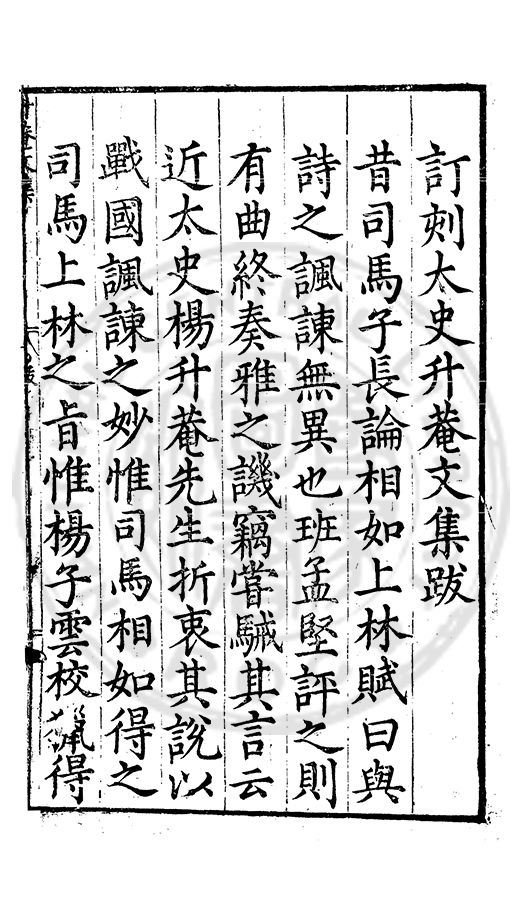 訂刻太史升菴文集跋
昔司馬子長論相如上林賦曰與
詩之諷諫無異也班孟堅評之則
有曲終奏雅之譏竊嘗駴其言云
近太史楊升菴先生折衷其說以
戰國諷諫之妙惟司馬相如得之
司馬上林之旨惟楊子雲校獵得